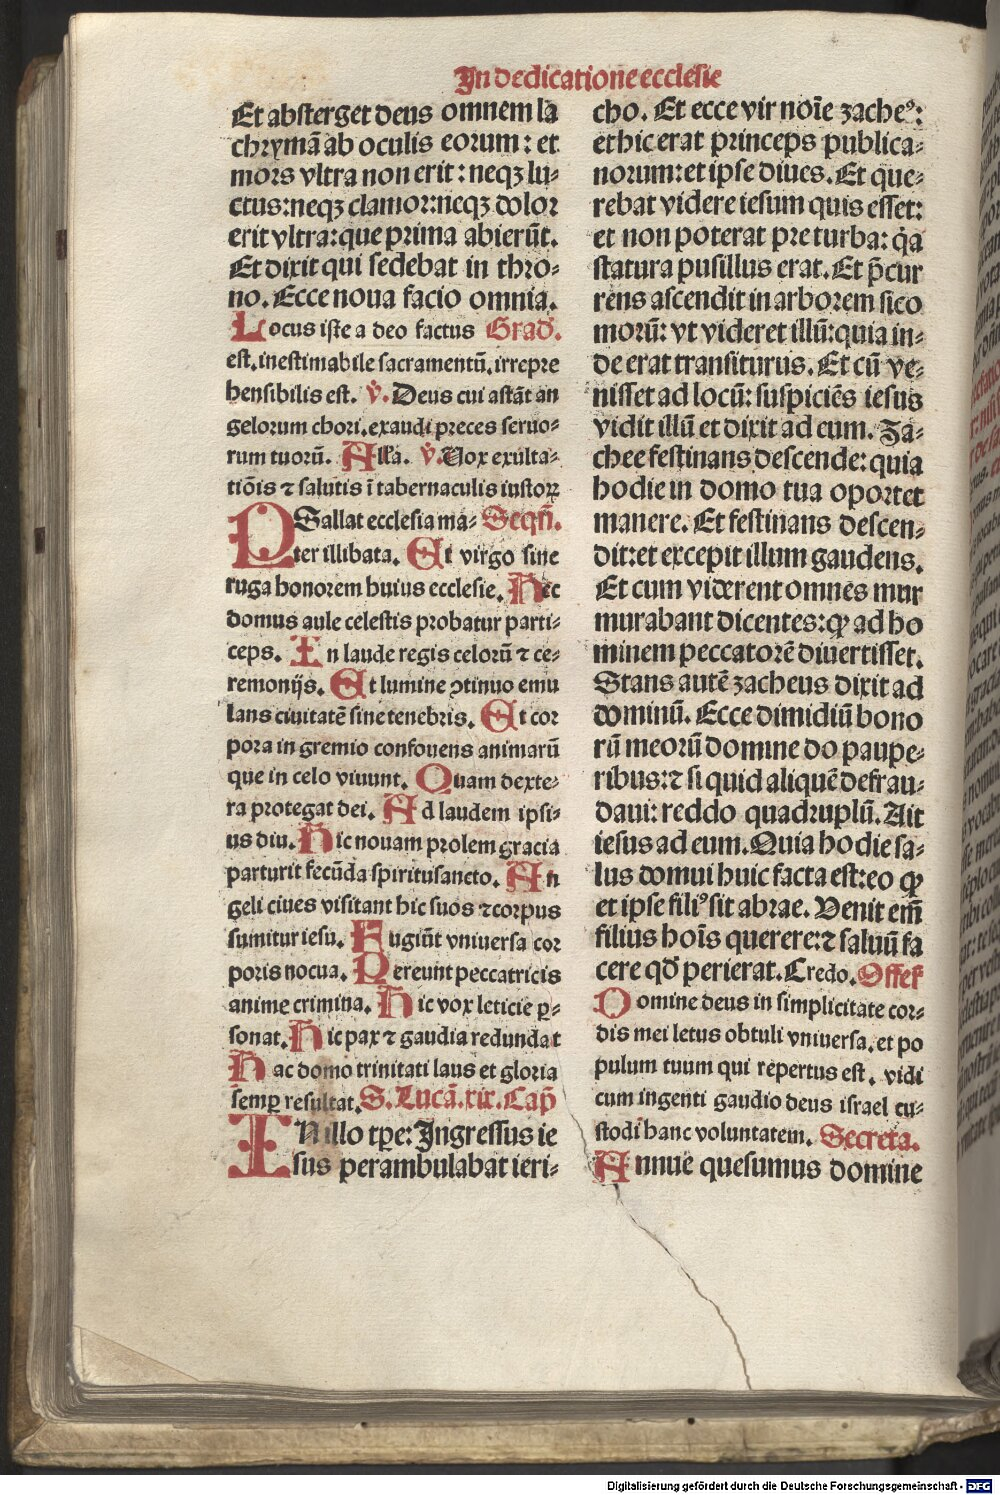 In dedicatione ecclesie
Et absterget deus omnem la
chrymā ab oculis eorum : et
mors vltra non erit : neqꝫ lu⸗
ctus: neqꝫ clamor: neqꝫ dolor
erit vltra: que prima abierūt.
Et dixit qui sedebat in thro⸗
no. Ecce noua facio omnia.
Locus iste a deo factus Grad̄.
est. inestimabile sacramentū. irrepre
hensibilis est. V̊. Deus cui astāt an
gelorum chori. exaudi preces seruo⸗
rum tuorū. Alla. V̊. Uox exulta⸗
tiōis ⁊ salutis ī tabernaculis iustoꝝ
PSallat ecclesia ma⸗ Seqn̄.
ter illibata. Et virgo sine
ruga honorem huius ecclesie. Hec
domus aule celestis probatur parti⸗
ceps. In laude regis celorū ⁊ ce⸗
remonijs. Et lumine ꝯtinuo emu
lans ciuitatē sine tenebris. Et cor
pora in gremio confouens animarū
que in celo viuunt. Quam dexte⸗
ra protegat dei. Ad laudem ipsi⸗
us diu. Hic nouam prolem gracia
parturit fecūda spiritusancto. An
geli ciues visitant hic suos ⁊ corpus
sumitur iesu. Fugiūt vniuersa cor
poris nocua. Pereunt peccatricis
anime crimina. Hic vox leticie ꝑ⸗
sonat. Hic pax ⁊ gaudia redundat
Hac domo trinitati laus et gloria
semꝑ resultat. S. Lucā. xix. Cap̄
IN illo tꝑe: Ingressus ie
sus perambulabat ieri⸗
cho. Et ecce vir noīe zacheꝰ:
et hic erat princeps publica⸗
norum: et ipse diues. Et que⸗
rebat videre iesum quis esset:
et non poterat pre turba: q̇a
statura pusillus erat. Et p̄cur
rens ascendit in arborem sico
morū: vt videret illū: quia in⸗
de erat transiturus. Et cū ve⸗
nisset ad locū: suspiciēs iesus
vidit illū et dixit ad eum. Za⸗
chee festinans descende: quia
hodie in domo tua oportet
manere. Et festinans descen⸗
dit: et excepit illum gaudens.
Et cum viderent omnes mur
murabant dicentes: ꝙ ad ho
minem peccatorē diuertisset.
Stans autē zacheus dixit ad
dominū. Ecce dimidiū bono
rū meorū domine do paupe⸗
ribus: ⁊ si quid aliquē defrau⸗
daui: reddo quadruplū. Ait
iesus ad eum. Quia hodie sa⸗
lus domui huic facta est: eo ꝙ
et ipse filiꝰ sit abrae. Venit em̄
filius hoīs querere: ⁊ saluū fa
cere qd̄ perierat. Credo. Offer̄
Domine deus in simplicitate cor⸗
dis mei letus obtuli vniuersa. et po
pulum tuum qui repertus est. vidi
cum ingenti gaudio deus israel cu⸗
stodi hanc voluntatem. Secreta.
Annue quesumus domine
Digitalisierung gefördert durch die Deutsche Forschungsgemeinschaft - DFG